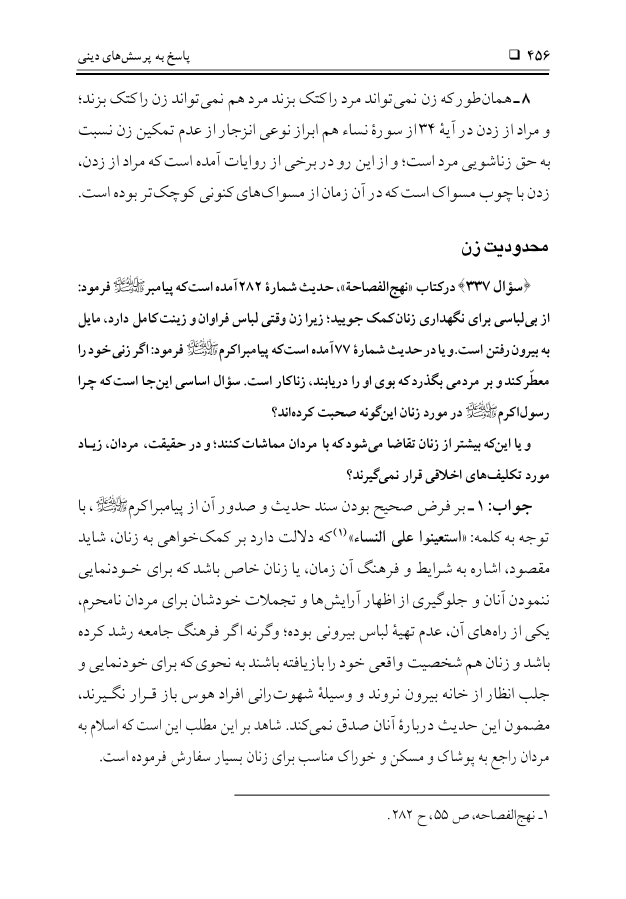 ۴۵۶ ❑ پاسخ به پرسش‌های دینی
۸ـ همان‌طور که زن نمی‌تواند مرد را کتک بزند مرد هم نمی‌تواند زن را کتک بزند؛
و مراد از زدن در آیهٔ ۳۴ از سورهٔ نساء هم ابراز نوعی انزجار از عدم تمکین زن نسبت
به حق زناشویی مرد است؛ و از این رو در برخی از روایات آمده است که مراد از زدن،
زدن با چوب مسواک است که در آن زمان از مسواک‌های کنونی کوچک‌تر بوده است.
محدودیت زن
﴿سؤال ۳۳۷﴾ در کتاب «نهج‌الفصاحة»، حدیث شمارهٔ ۲۸۲ آمده است که پیامبر ﷺ فرمود:
از بی‌لباسی برای نگهداری زنان کمک جویید؛ زیرا زن وقتی لباس فراوان و زینت کامل دارد، مایل
به بیرون رفتن است. و یا در حدیث شمارهٔ ۷۷ آمده است که پیامبراکرم ﷺ فرمود: اگر زنی خود را
معطّر کند و بر مردمی بگذرد که بوی او را دریابند، زناکار است. سؤال اساسی این‌جا است که چرا
رسول‌اکرم ﷺ در مورد زنان این‌گونه صحبت کرده‌اند؟
و یا این‌که بیشتر از زنان تقاضا می‌شود که با مردان مماشات کنند؛ و در حقیقت، مردان، زیـاد
مورد تکلیف‌های اخلاقی قرار نمی‌گیرند؟
جواب: ۱ـ بر فرض صحیح بودن سند حدیث و صدور آن از پیامبراکرم ﷺ، با
توجه به کلمه: «استعینوا علی النساء»(۱) که دلالت دارد بر کمک‌خواهی به زنان، شاید
مقصود، اشاره به شرایط و فرهنگ آن زمان، یا زنان خاص باشد که برای خـودنمایی
ننمودن آنان و جلوگیری از اظهار آرایش‌ها و تجملات خودشان برای مردان نامحرم،
یکی از راه‌های آن، عدم تهیهٔ لباس بیرونی بوده؛ وگرنه اگر فرهنگ جامعه رشد کرده
باشد و زنان هم شخصیت واقعی خود را بازیافته باشند به نحوی که برای خودنمایی و
جلب انظار از خانه بیرون نروند و وسیلهٔ شهوت‌رانی افراد هوس باز قـرار نگـیرند،
مضمون این حدیث دربارهٔ آنان صدق نمی‌کند. شاهد بر این مطلب این است که اسلام به
مردان راجع به پوشاک و مسکن و خوراک مناسب برای زنان بسیار سفارش فرموده است.
۱ـ نهج‌الفصاحه، ص ۵۵، ح ۲۸۲.